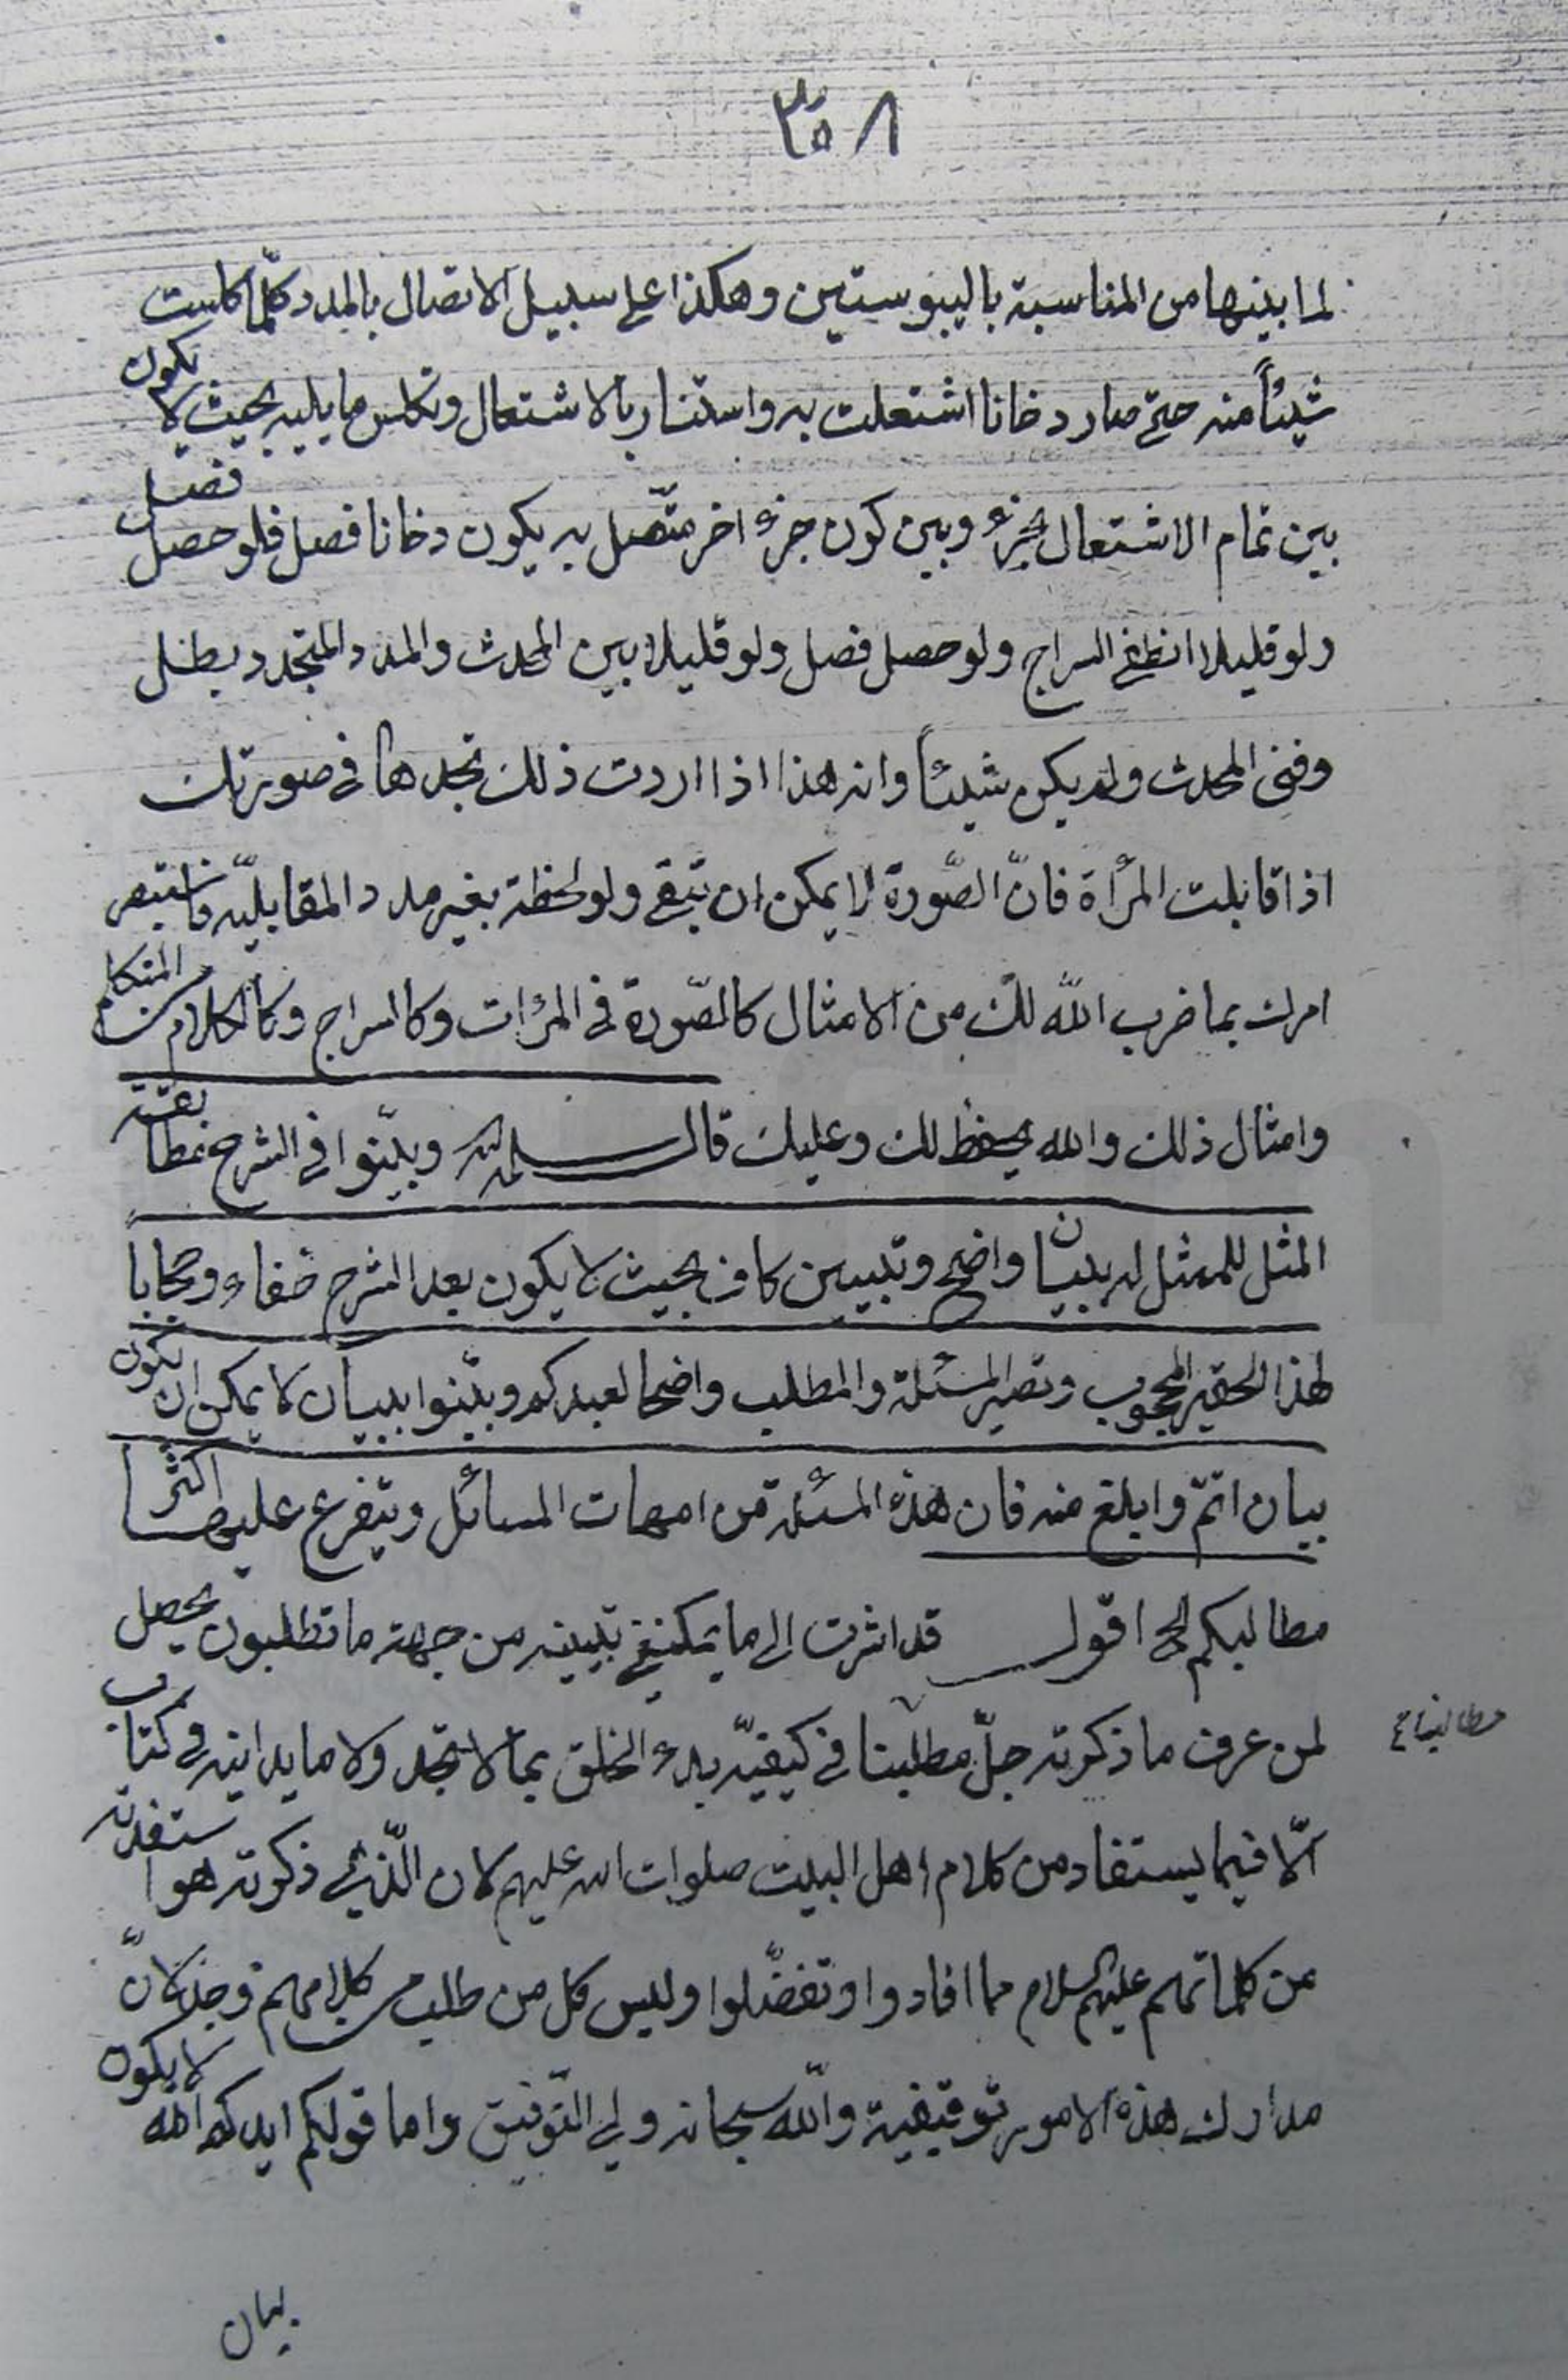 ٣٥٨
لما بينهما من المناسبة باليبوستين وهكذا على سبيل الاتصال بالمدد كلّما كلست
شيئاً منه حتى صار دخانا اشتعلت به واستنار بالاشتعال وتكلس ما يليه بحيث لا يكون
بين تمام الاشتعال لجزء وبين كون جزء اخر متّصل به يكون دخانا فصل فلو حصل فصل
ولو قليلا انطفى السراج ولو حصل فصل ولو قليلا بين المحدث والمدد المتجدد بطل
وفنى المحدث ولم يكن شيئاً وانه هذا اذا اردت ذلك تجدها في صورتك
اذا قابلت المرأة فانّ الصّورة لا يمكن ان تبقى ولو لحظة بغير مدد المقابليّه فاستبصر
امرك بما ضرب الله لك من الامثال كالصّورة في المرات وكالسراج وكالكلام من المتكلم
وامثال ذلك والله يحفظ لك وعليك قال سلمه الله وبيّنوا في الشرح مطابقة
المثل للممثل له ببيان واضح وتبيين كاف بحيث لا يكون بعد الشرح خفاء وحجابا
لهذا الحقير المحجوب وتصير المسئلة والمطلب واضحا لعبدكم وبيّنوا ببيان لا يمكن ان يكون
بيان اتمّ وابلغ منه فان هذه المسئلة من امهات المسائل ويتفرع عليها اكثر
مطالبكم الخ اقول قد اشرت الى ما يمكننى تبيينه من جهة ما تطلبون يحصل
لمن عرف ما ذكرته جلّ مطلبنا في كيفيّه بدء الخلق بما لا تجد ولا ما يدانيه في كتاب
الّا فيما يستفاد من كلام اهل البيت صلوات الله عليهم لان الّذى ذكرته هو استفدته
من كلماتهم عليهم السلام مما افادوا وتفضّلوا وليس كل من طلب من كلامهم وجد لانّ
مدارك هذه الامور توقيفية والله سبحانه ولي التّوفيق واما قولكم ايدكم الله لا يكون
بيان